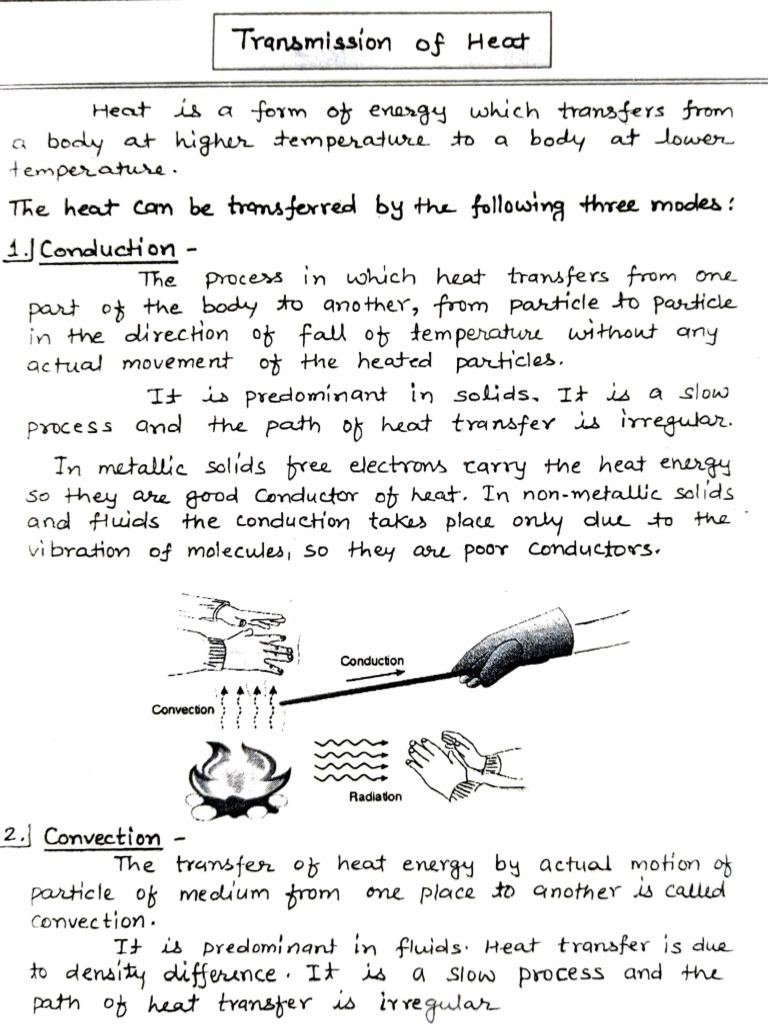 Transmission of Heat
Heat is a form of energy which transfers from
a body at higher temperature to a body at lower
temperature.
The heat can be transferred by the following three modes:
1. Conduction -
The process in which heat transfers from one
part of the body to another, from particle to particle
in the direction of fall of temperature without any
actual movement of the heated particles.
It is predominant in solids. It is a slow
process and the path of heat transfer is irregular.
In metallic solids free electrons carry the heat energy
so they are good Conductor of heat. In non-metallic solids
and fluids the conduction takes place only due to the
vibration of molecules, so they are poor conductors.
Conduction
Convection
Radiation
2. Convection -
The transfer of heat energy by actual motion of
particle of medium from one place to another is called
convection.
It is predominant in fluids. Heat transfer is due
to density difference. It is a slow process and the
path of heat transfer is irregular